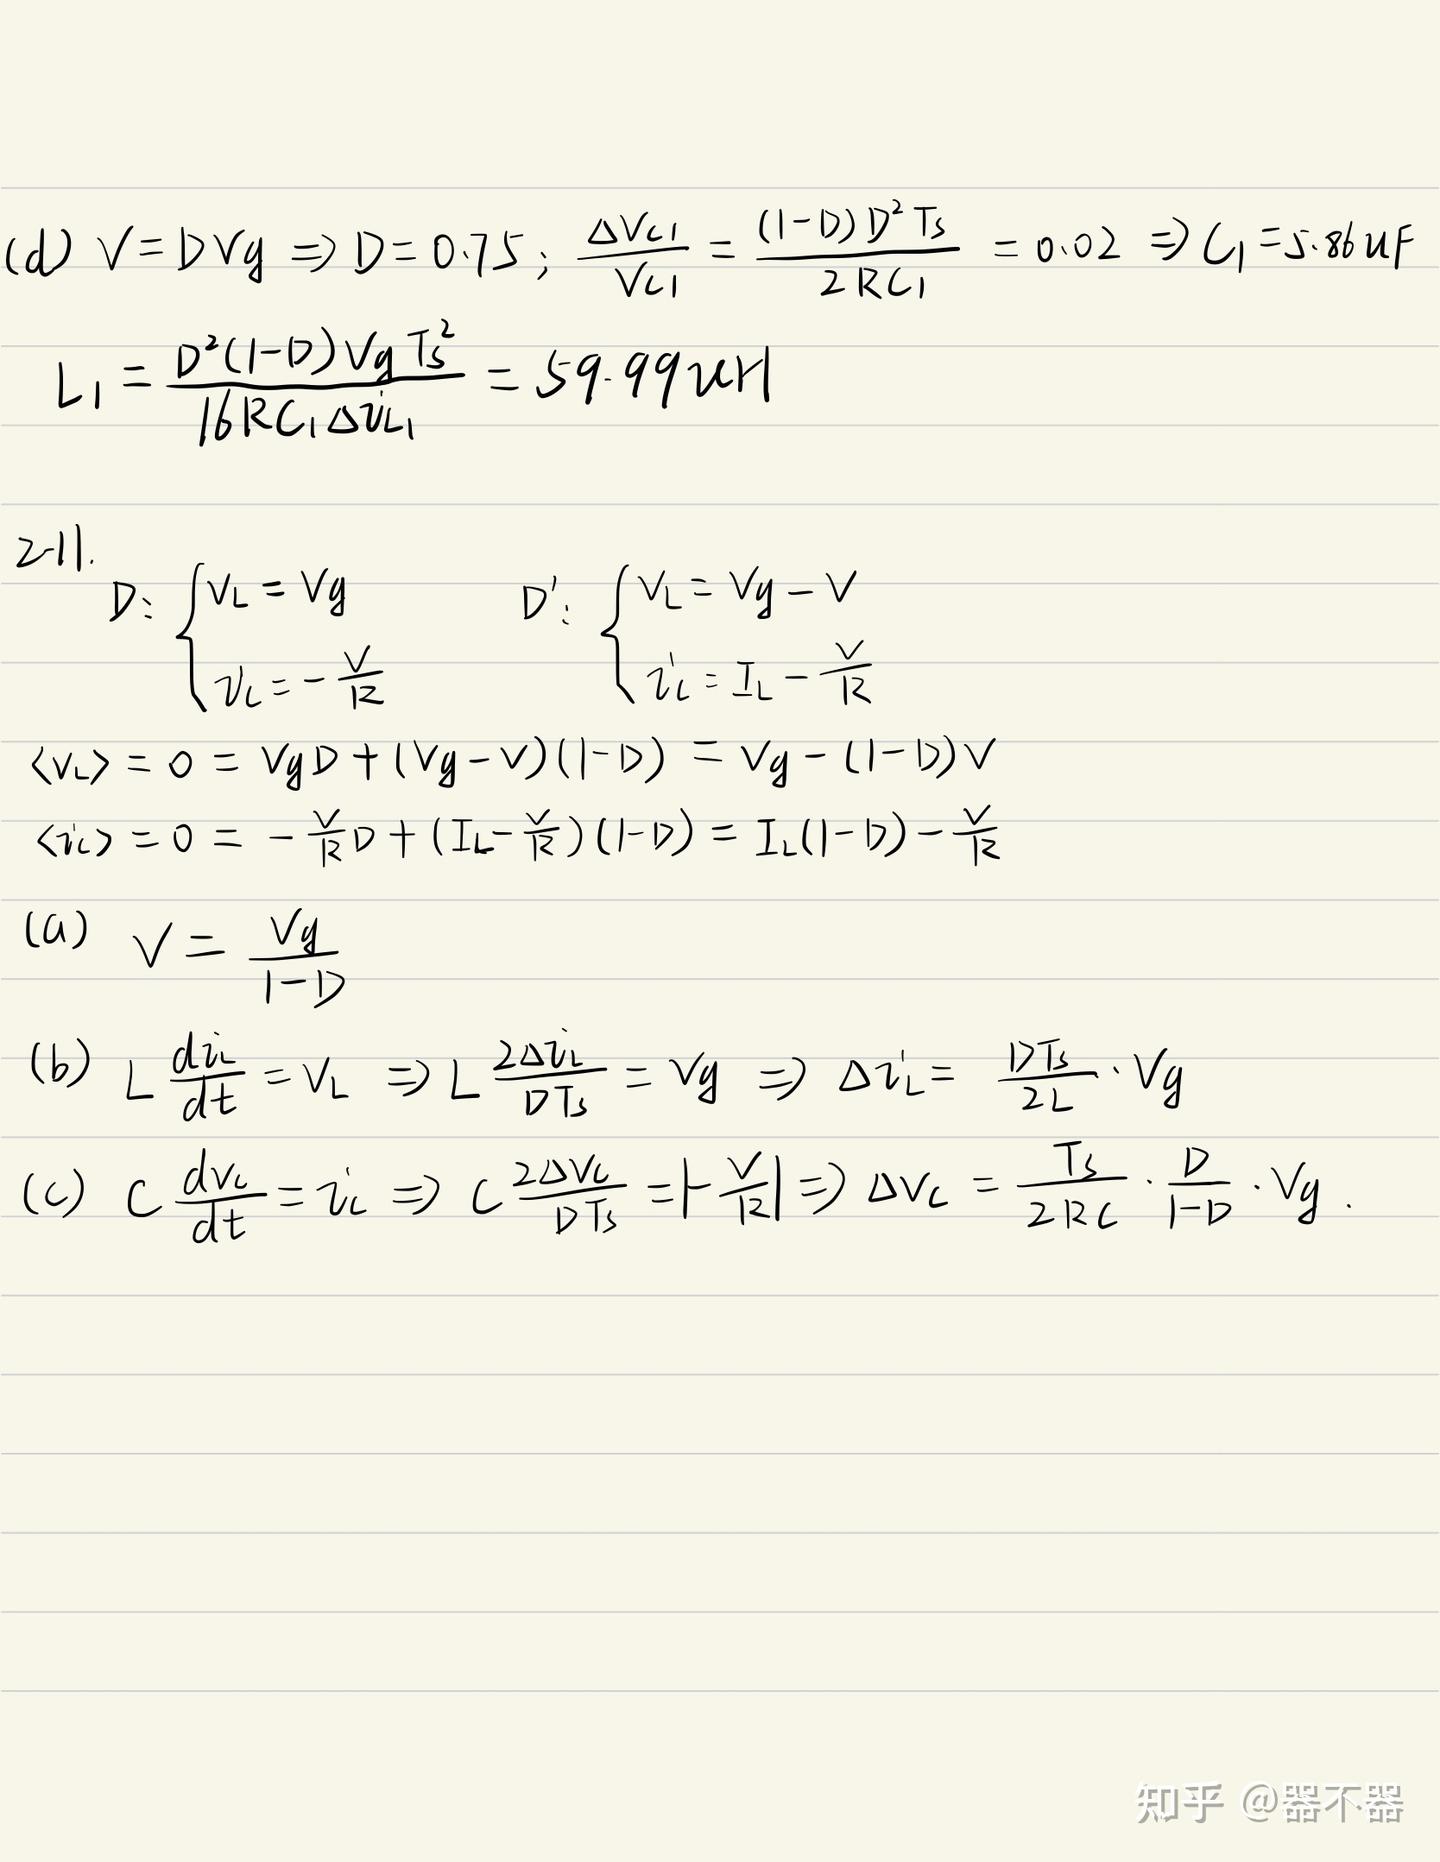 (d) V = DVg ⇒ D = 0.75 ; ΔVC1/VC1 = (1-D)D²Ts/2RC1 = 0.02 ⇒ C1 = 5.86uF
L1 = D²(1-D)VgTs²/16RC1ΔiL1 = 59.99uH
2-11.
D: { VL = Vg D': { VL = Vg - V
ic = - V/R ic = IL - V/R
<VL> = 0 = VgD + (Vg-V)(1-D) = Vg - (1-D)V
<ic> = 0 = - V/R D + (IL - V/R)(1-D) = IL(1-D) - V/R
(a) V = Vg/1-D
(b) L diL/dt = VL ⇒ L 2ΔiL/DTs = Vg ⇒ ΔiL = DTs/2L · Vg
(c) C dvc/dt = ic ⇒ C 2ΔVc/DTs = |- V/R| ⇒ ΔVc = Ts/2RC · D/1-D · Vg .
知乎 @器不器